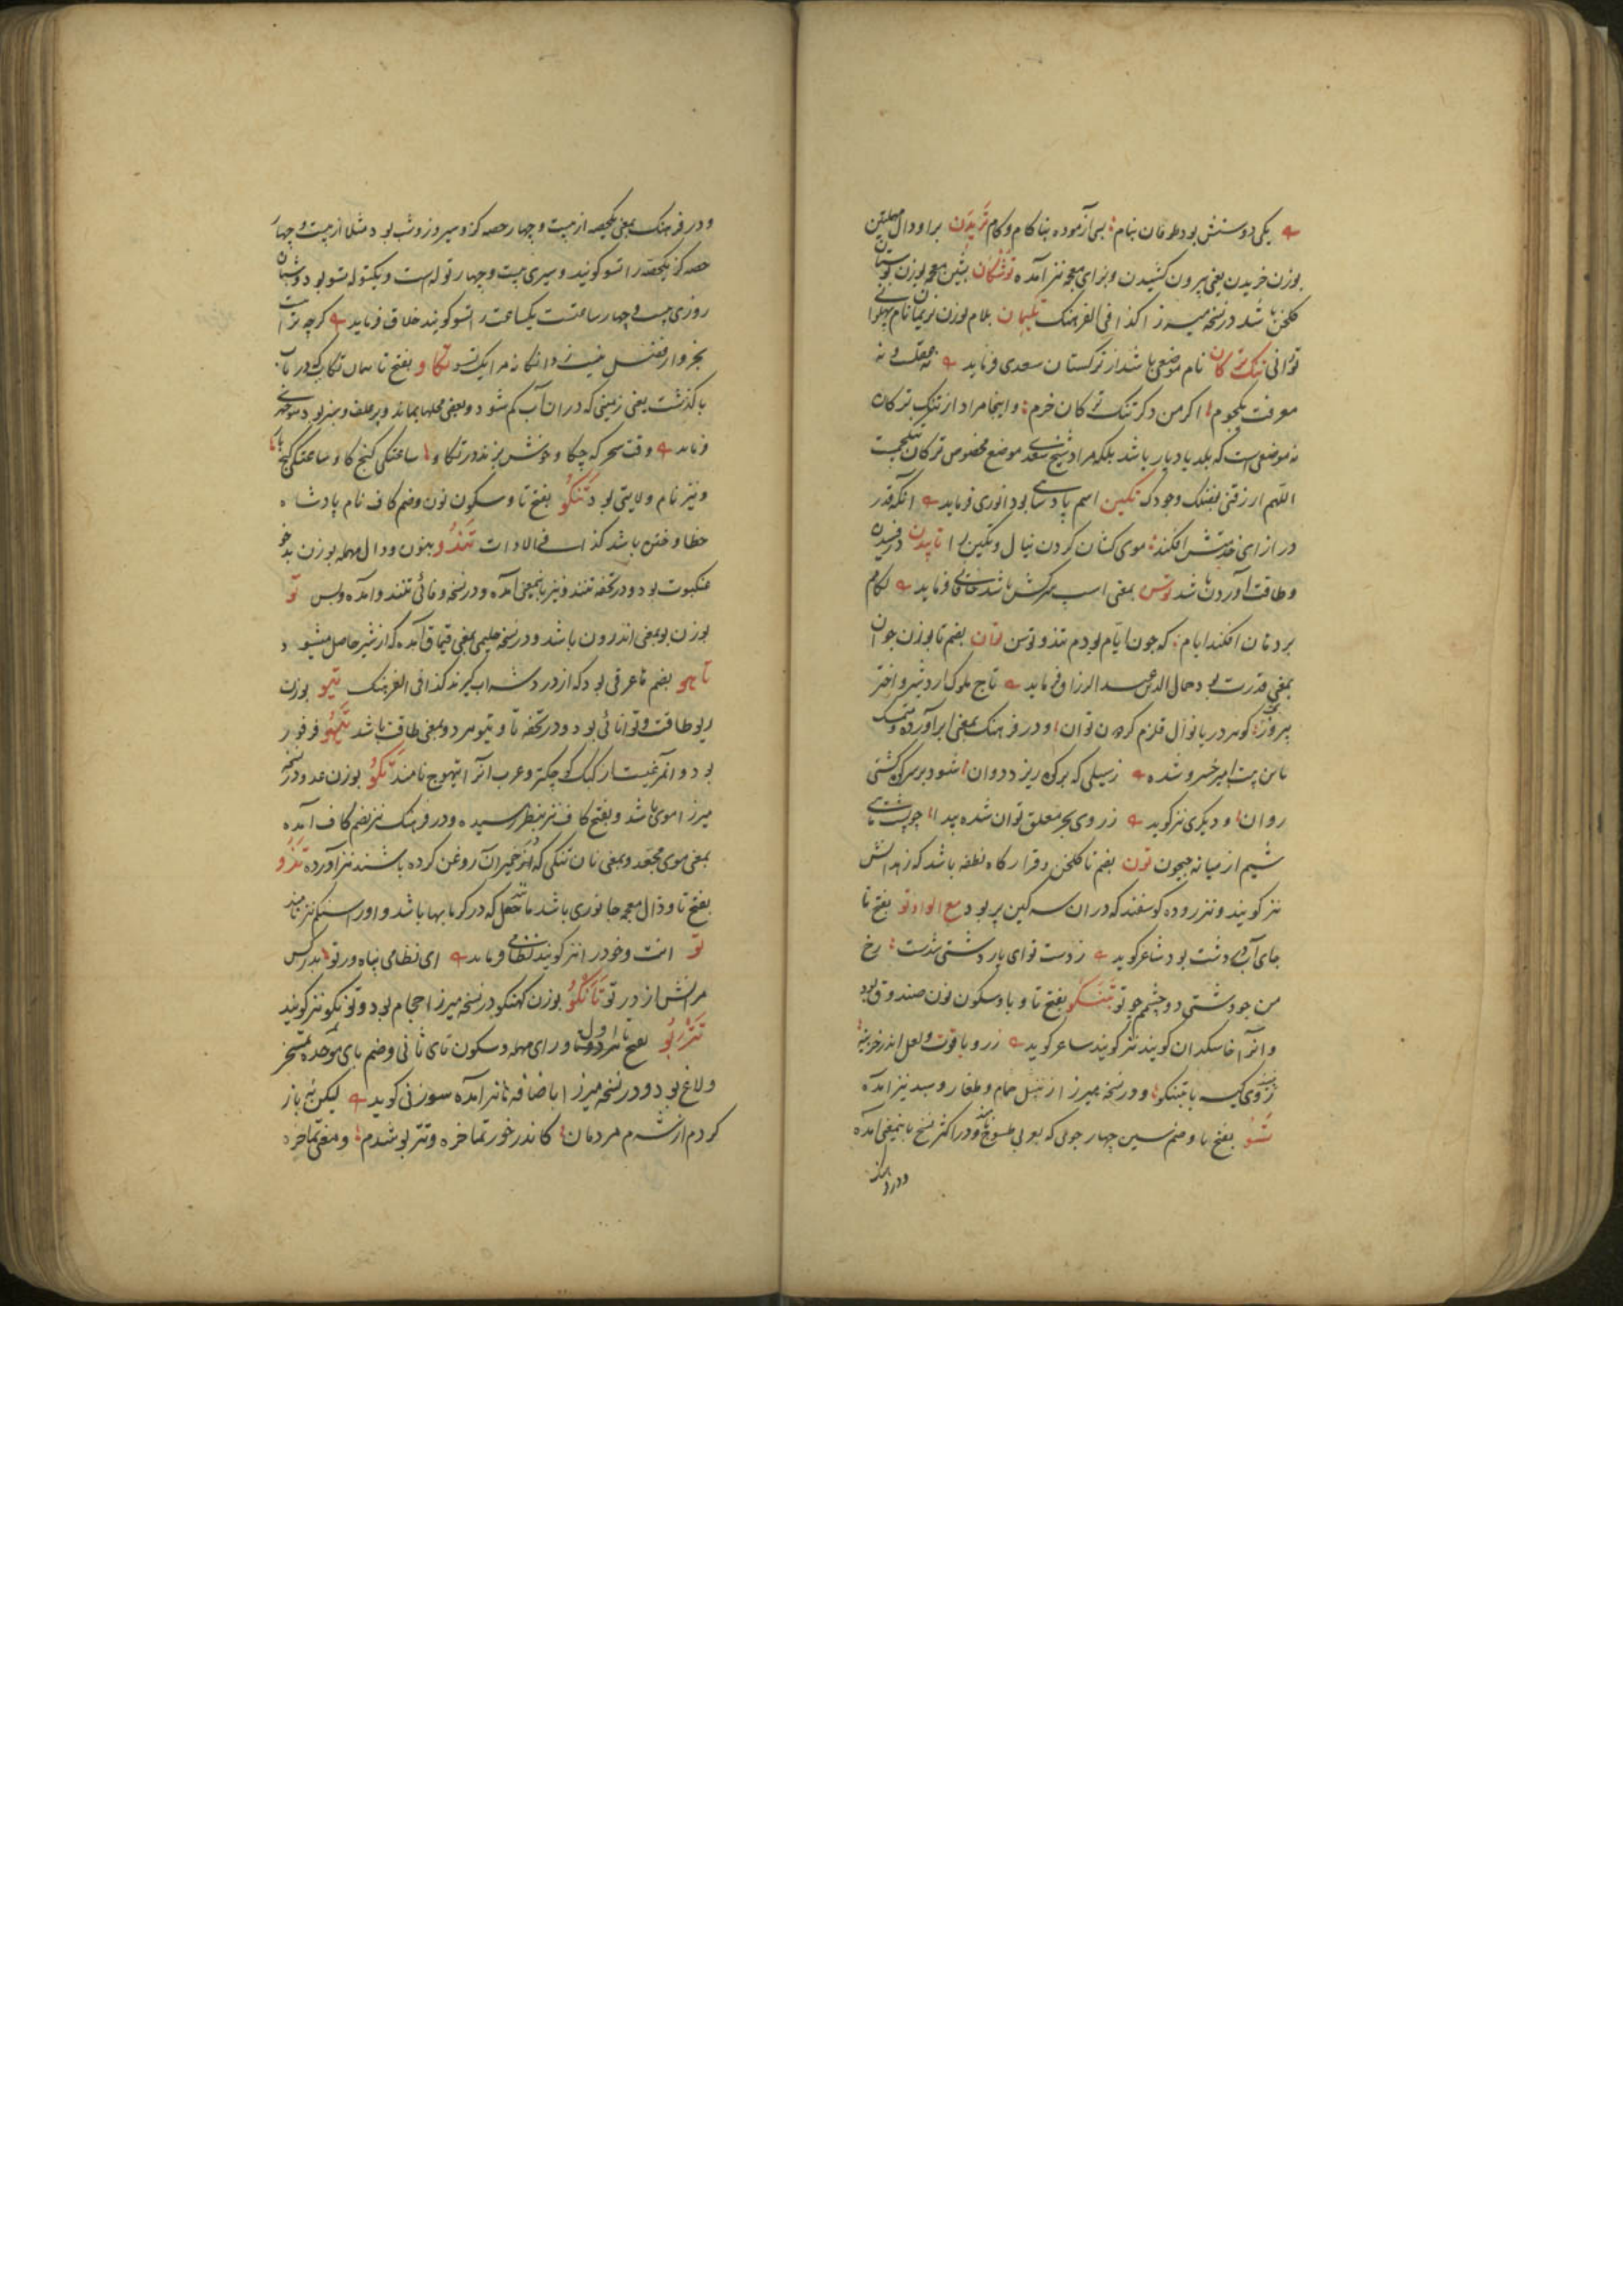 یکی دوستش بود طوفان بنام بسی آزموده بناکام و کام تریدن برا و دال مهملتین
بوزن خریدن یعنی بیرون کشیدن و بزای معجمه نیز آمده توشکان بشین معجمه بوزن بوستان
کلخن باشد در نسخه میرزا کذا فی الفرهنک تلیمان بلام بوزن نریمان نام پهلوانی
تورانی تنک ترکان نام موضعی باشد از ترکستان سعدی فرماید نه عقلت و نه
معرفت یکجوم اکر من دکر تنک ترکان خرم و اینجا مراد از تنک ترکان
نه موضعی است که بلد یا دیار باشد بلکه مراد شیخ سعدی موضع مخصوص ترکان
اللهم ارزقنی بفضلک وجودک تکین اسم پادشاهی بود انوری فرماید انکه قدر
در ازای خدمتش افکند موی کشان کردن ینال و تکین را تابیدن
و طاقت آوردن باشد توسن بمعنی اسب سرکش باشد خاقانی فرماید لکام
بردهان افکند ایام که چون ایام بودم تند و توسن توان بضم تا بوزن جوان
بمعنی قدرت بود جمال الدین عبدالرزاق فرماید تاج ملوک اردشیر و اختر
پیروز کوهر دریا نوال قلزم کوه توان و در فرهنک بمعنی برآورده
شده ز سیلی که بر کوه ریزد دوان شود بر سر کوه کشتی
روان و دیکری نیز کوید ز روی بحر معلق توان شده پیدا چو پشت ماهی
شیم از میانه جیحون تون بضم تا کلخن و قرارکاه نطفه باشد که زهدانش
نیز کویند و نیز روده کوسفند که در ان سرکین پر بود مع الواو تو بفتح تا
جای آب در دشت بود شاعر کوید ز دست تو ای یار دشتی شدست رخ
من چو دشتی دو چشمم چو تو تبنکو بفتح تا و با و سکون نون صندوق بود
و انرا خاسکدان کویند نیز کویند شاعر کوید زر و یاقوت و لعل اندر خزینه
ز روی کیسه با تبنکو و در نسخه میرزا زنبیل حمام و طغار و سبد نیز آمده
تسو بفتح تا و ضم سین چهار جوی که بعربی طسوج نامند و در اکثر نسخ باینمعنی آمده
و در فرهنک
و در فرهنک بمعنی یکحصه از بیست و چهار حصه کز و سیر و روز و شب بود مثلا از بیست و چهار
حصه کز یکحصه را تسو کویند و سیری بیست و چهار توله است و یکتوله تسو بود و شبان
روزی بیست و چهار ساعتست یکساعت را تسو کویند خلاق فرماید کرچه ترا
بخروار فضل نیست دانکانه مرا یک تسو تکاو بفتح تا همان تکاب که در باب
با کذشت یعنی زمینی که در ان آب کم شود و بعضی محلها بماند و پر علف و سبز بود منوچهری
فرماید وقت سحر که چکاو خوش بزند در تکاو ساعتکی کنج کاو ساعتکی کنج باد
و نیز نام ولایتی بود تنکو بفتح تا و سکون نون و ضم کاف نام پادشاه
خطا و ختن باشد کذا فی الادات تندو بنون و دال مهمله بوزن بدخو
عنکبوت بود و در تحفه تنندو نیز باینمعنی آمده و در نسخه وفائی تنندو آمده و بس تو
بوزن بو بمعنی اندرون باشد و در نسخه حلیمی بمعنی قیماق آمده که از شیر حاصل میشود
تاهو بضم ها عرقی بود که از درد شراب کیرند کذا فی الفرهنک تیو بوزن
ریو طاقت و توانائی بود و در تحفه تاو تیو هر دو بمعنی طاقت باشد تیهو فرفور
بود و انمرغیست از کبک کوچکتر و عرب انرا تیهوج نامند تکو بوزن عدو در نسخه
میرزا موی باشد و بفتح کاف نیز بنظر رسیده و در فرهنک نیز بضم کاف آمده
بمعنی موی مجعد و بمعنی نان تنکی که در خمیر ان روغن کرده باشند نیز آورده تذرو
بفتح تا و ذال معجمه جانوری باشد مانند جعل که در کرمابها باشد و اورا نیز نامند
تو انت و خود را نیز کویند نظامی فرماید ای نظامی پناه ور تو بدر کس
مرانش از در تو تانکو بوزن کهنکو در نسخه میرزا حجام بود و تونکو نیز کویند
تتربو بفتح تا اول و رای مهمله و سکون تای ثانی و ضم بای موحده تمسخر
و لاغ بود و در نسخه میرزا باضافه ها نیز آمده سوزنی کوید لیکن باز
کردم از شرم مردمان کاندر خور تماخره و تتربو شدم و معنی تماخره